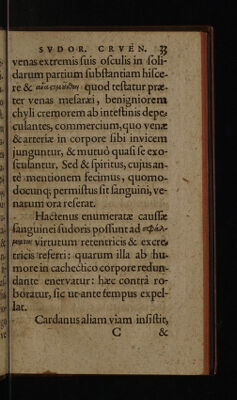 SVDOR. CRVEN. 33
venas extremis suis osculis in soli-
darum partium substantiam hisce-
re & ἀναστομοῦσθαι quod testatur præ-
ter venas mesaræi, benigniorem
chyli cremorem ab intestinis depe-
culantes, commercium, quo venæ
& arteriæ in corpore sibi invicem
junguntur, & mutuò quasi se exo-
sculantur. Sed & spiritus, cujus an-
tè mentionem fecimus, quomo-
docunq; permistus sit sanguini, ve-
narum ora reserat.
Hactenus enumeratæ caussæ
sanguinei sudoris possunt ad σφάλ-
ματα virtutum retentricis & excre-
tricis referri: quarum illa ab hu-
more in cachectico corpore redun-
dante enervatur: hæc contrà ro-
boratur, sic ut ante tempus expel-
lat.
Cardanus aliam viam insistit,
C &